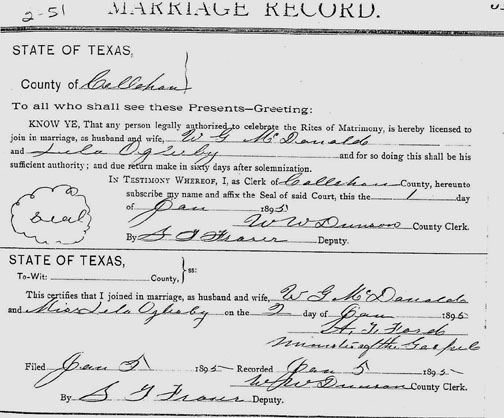 2-51
MARRIAGE RECORD.
STATE OF TEXAS,
County of Callahan
To all who shall see these Presents—Greeting:
KNOW YE, That any person legally authorized to celebrate the Rites of Matrimony, is hereby licensed to
join in marriage, as husband and wife, W G McDonald
and Lela Oglesby and for so doing this shall be his
sufficient authority; and due return make in sixty days after solemnization.
IN TESTIMONY WHEREOF, I, as Clerk of Callahan County, hereunto
subscribe my name and affix the Seal of said Court, this the 1 day
Seal
of Jan 1895
W W Dunson County Clerk.
By S T Fraser Deputy.
STATE OF TEXAS,
To-Wit: County, ss:
This certifies that I joined in marriage, as husband and wife, W G McDonald
and Miss Lela Oglesby on the 2 day of Jan 1895
Ford
Minister of the Gospel
Filed Jan 5 1895 Recorded Jan 5 1895
W W Dunson County Clerk.
By S T Fraser Deputy.